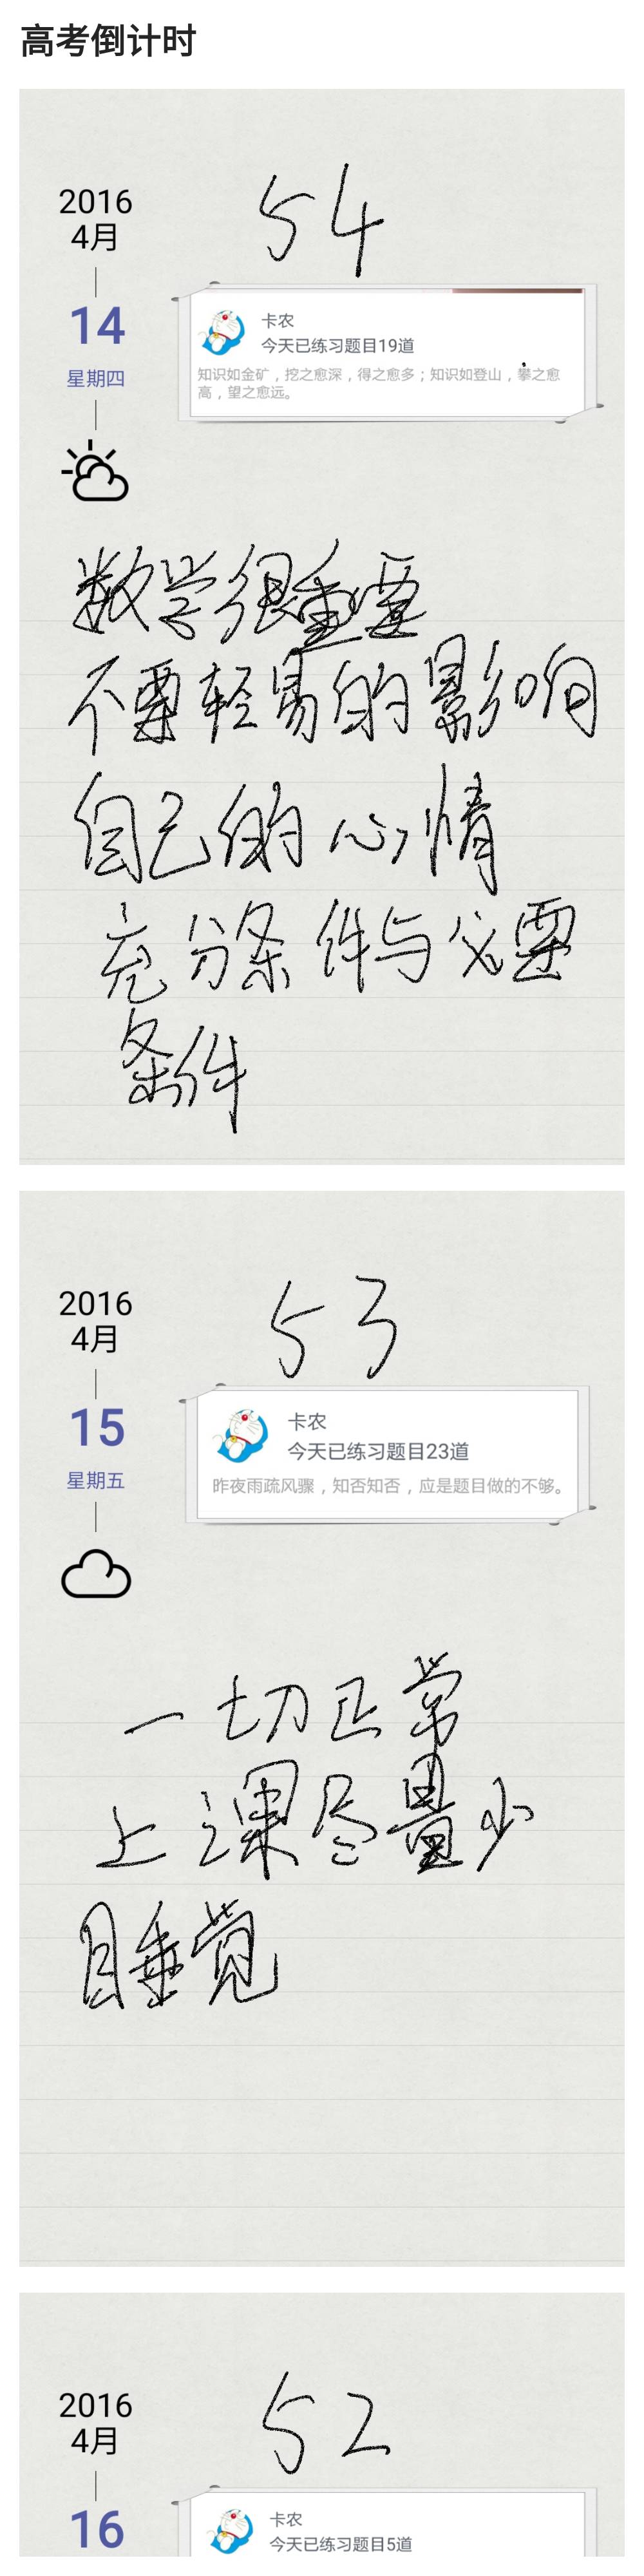 高考倒计时
54
2016
4月
14
星期四
卡农
今天已练习题目19道
知识如金矿，挖之愈深，得之愈多；知识如登山，攀之愈
高，望之愈远。
数学很重要
不要轻易的影响
自己的心情
充分条件与必要
条件
53
2016
4月
15
星期五
卡农
今天已练习题目23道
昨夜雨疏风骤，知否知否，应是题目做的不够。
一切正常
上课尽量少
睡觉
52
2016
4月
16
卡农
今天已练习题目5道